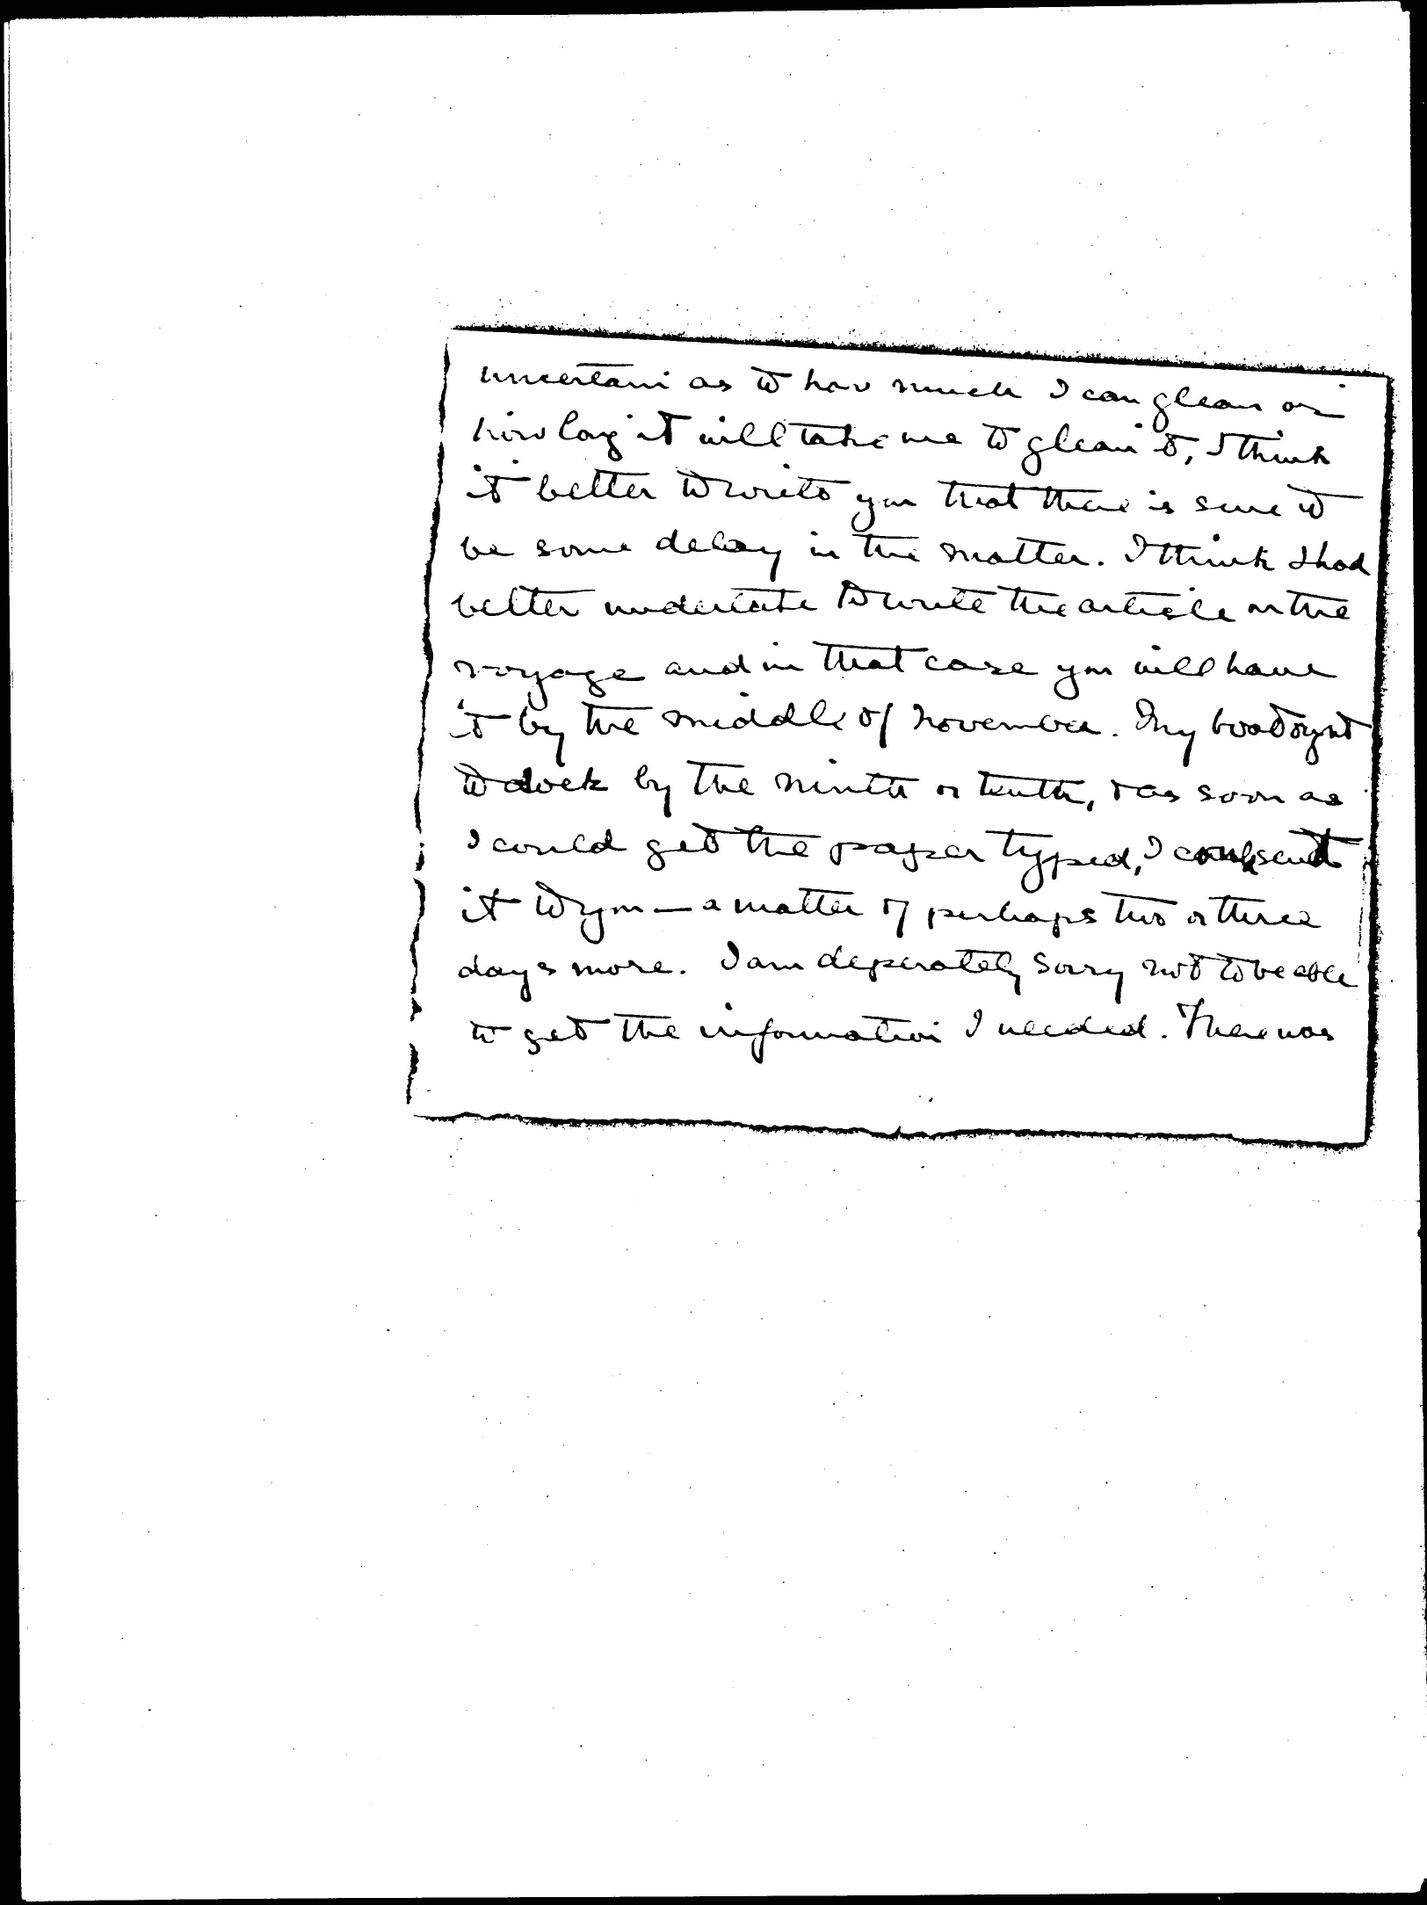 uncertain as to how much I can glean or
how long it will take me to glean it, I think
it better to write you that there is sure to
be some delay in the matter. I think I had
better undertake to write the article on the
voyage and in that case you will have
it by the middle of November. My boat ought
to dock by the ninth or tenth, & as soon as
I could get the paper typed, I could send
it to you — a matter of perhaps two or three
days more. I am desperately sorry not to be able
to get the information I needed. There was